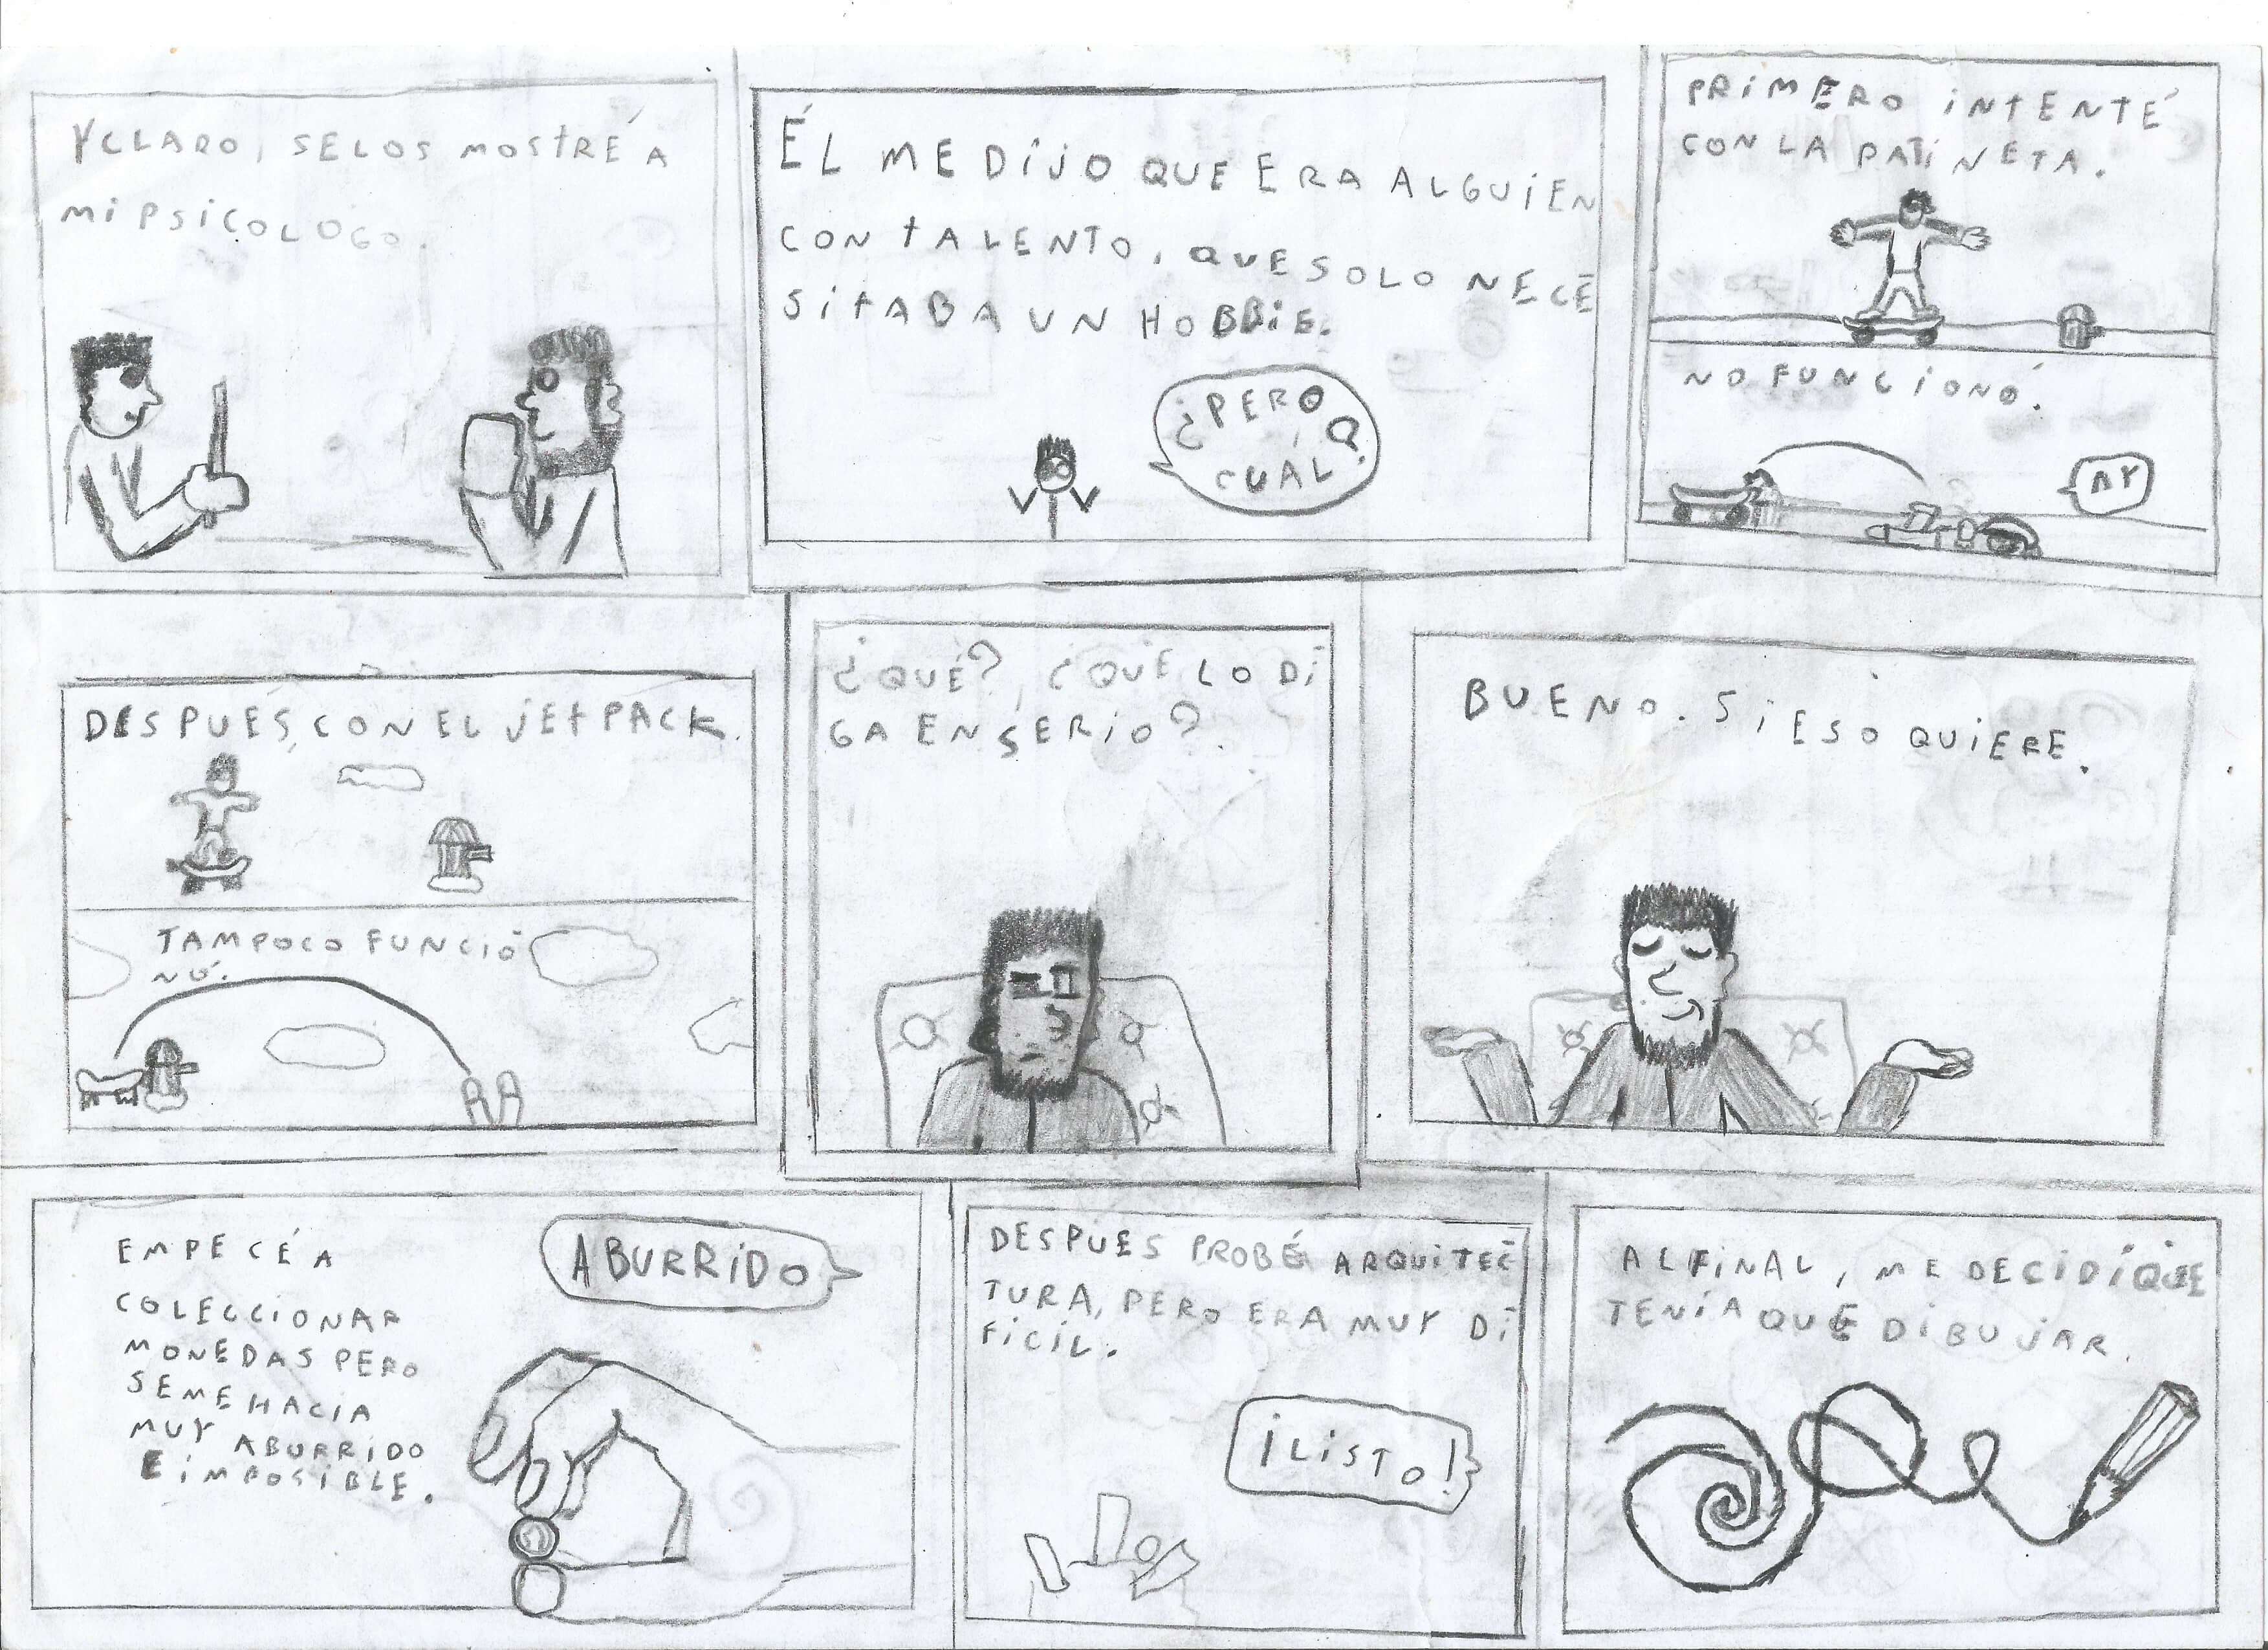 Y CLARO, SE LOS MOSTRÉ A
MI PSICOLOGO.
ÉL ME DIJO QUE ERA ALGUIEN
CON TALENTO, QUE SOLO NECE
SITABA UN HOBBIE.
¿PERO
CUÁL?
PRIMERO INTENTÉ
CON LA PATINETA.
NO FUNCIONÓ.
AY
DESPUÉS, CON EL JETPACK.
TAMPOCO FUNCIO
NÓ.
¿QUÉ?, ¿QUE LO DI
GA EN SERIO?.
BUENO. SI ESO QUIERE.
EMPECÉ A
COLECCIONAR
MONEDAS PERO
SE ME HACIA
MUY ABURRIDO
E IMPOSIBLE.
ABURRIDO
DESPUES PROBÉ ARQUITEC
TURA, PERO ERA MUY DI
FICIL.
¡LISTO!
AL FINAL, ME DECIDÍ QUE
TENÍA QUE DIBUJAR.